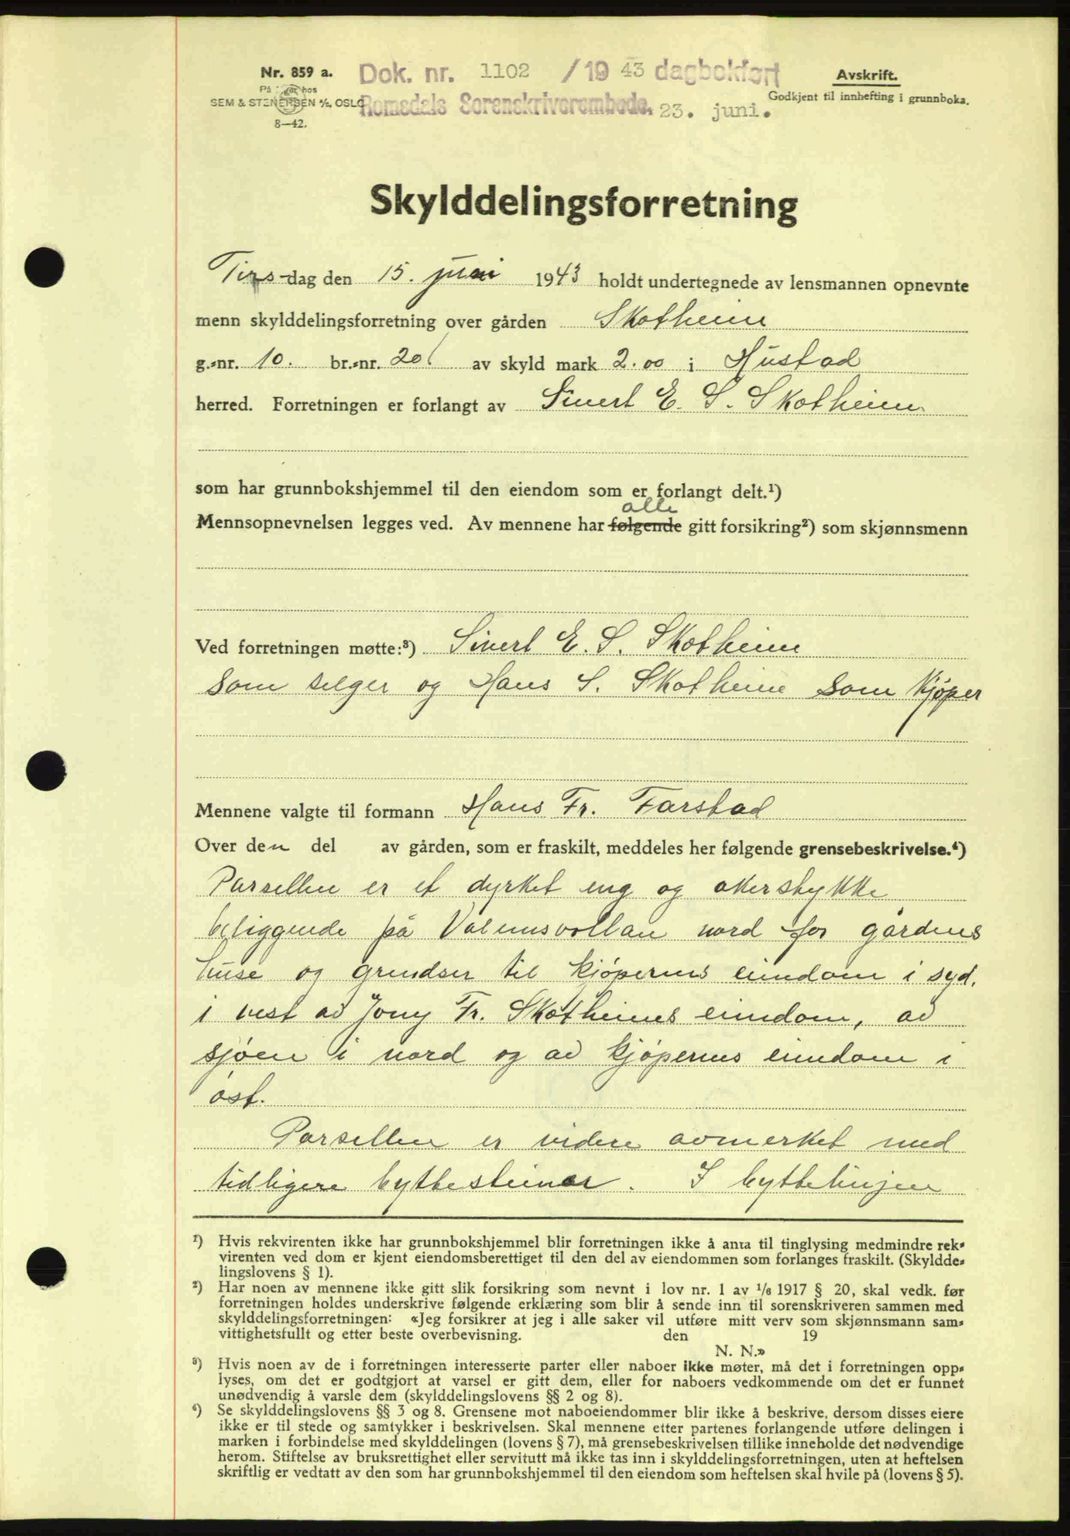 Nr. 859 a.
Dok. nr. 1102 /19 43 dagbokført
Avskrift.
SEM & STENERSEN A/S, OSLO
Romsdals Sorenskriverembede. 23. juni.
Godkjent til innhefting i grunnboka.
8—42.
Skylddelingsforretning
Tirs-dag den 15. juni 1943 holdt undertegnede av lensmannen opnevnte
menn skylddelingsforretning over gården Skotheim
g.-nr. 10. br.-nr. 20 av skyld mark 2.00 i Hustad
herred. Forretningen er forlangt av Sivert E. S. Skotheim
som har grunnbokshjemmel til den eiendom som er forlangt delt.¹)
alle
Mennsopnevnelsen legges ved. Av mennene har følgende gitt forsikring²) som skjønnsmenn
Ved forretningen møtte:³) Sivert E. S. Skotheim
som selger og Hans S. Skotheim som kjøper
Mennene valgte til formann Hans Fr. Farstad
Over den del av gården, som er fraskilt, meddeles her følgende grensebeskrivelse.⁴)
Parsellen er et dyrket eng og akerstykke
beliggende på nord for gårdens
huse og grendser til kjøperens eiendom i syd,
i vest av Jony Fr. Skotheims eiendom, av
sjøen i nord og av kjøperens eiendom i
øst.
Parsellen er videre avmerket med
tidligere byttesteiner. I byttelinjen
¹) Hvis rekvirenten ikke har grunnbokshjemmel blir forretningen ikke å anta til tinglysing medmindre rek-
virenten ved dom er kjent eiendomsberettiget til den del av eiendommen som forlanges fraskilt. (Skyldde-
lingslovens § 1).
²) Har noen av mennene ikke gitt slik forsikring som nevnt i lov nr. 1 av 1/6 1917 § 20, skal vedk. før
forretningen holdes underskrive følgende erklæring som blir å sende inn til sorenskriveren sammen med
skylddelingsforretningen: «Jeg forsikrer at jeg i alle saker vil utføre mitt verv som skjønnsmann sam-
vittighetsfullt og etter beste overbevisning. den 19
N. N.»
³) Hvis noen av de i forretningen interesserte parter eller naboer ikke møter, må det i forretningen opp-
lyses, om det er godtgjort at varsel er gitt dem, eller for naboers vedkommende om det er funnet
unødvendig å varsle dem (skylddelingslovens §§ 2 og 8).
⁴) Se skylddelingslovens §§ 3 og 8. Grensene mot naboeiendommer blir ikke å beskrive, dersom disses eiere
ikke er til stede og samtykker i beskrivelsen. Skal mennene etter partenes forlangende utføre delingen i
marken i forbindelse med skylddelingen (lovens § 7), må grensebeskrivelsen tillike inneholde det nødvendige
herom. Stiftelse av bruksrettighet eller servitutt må ikke tas inn i skylddelingsforretningen, uten at heftelsen
skriftlig er vedtatt av den som har grunnbokshjemmel til den eiendom som heftelsen skal hvile på (lovens § 5).